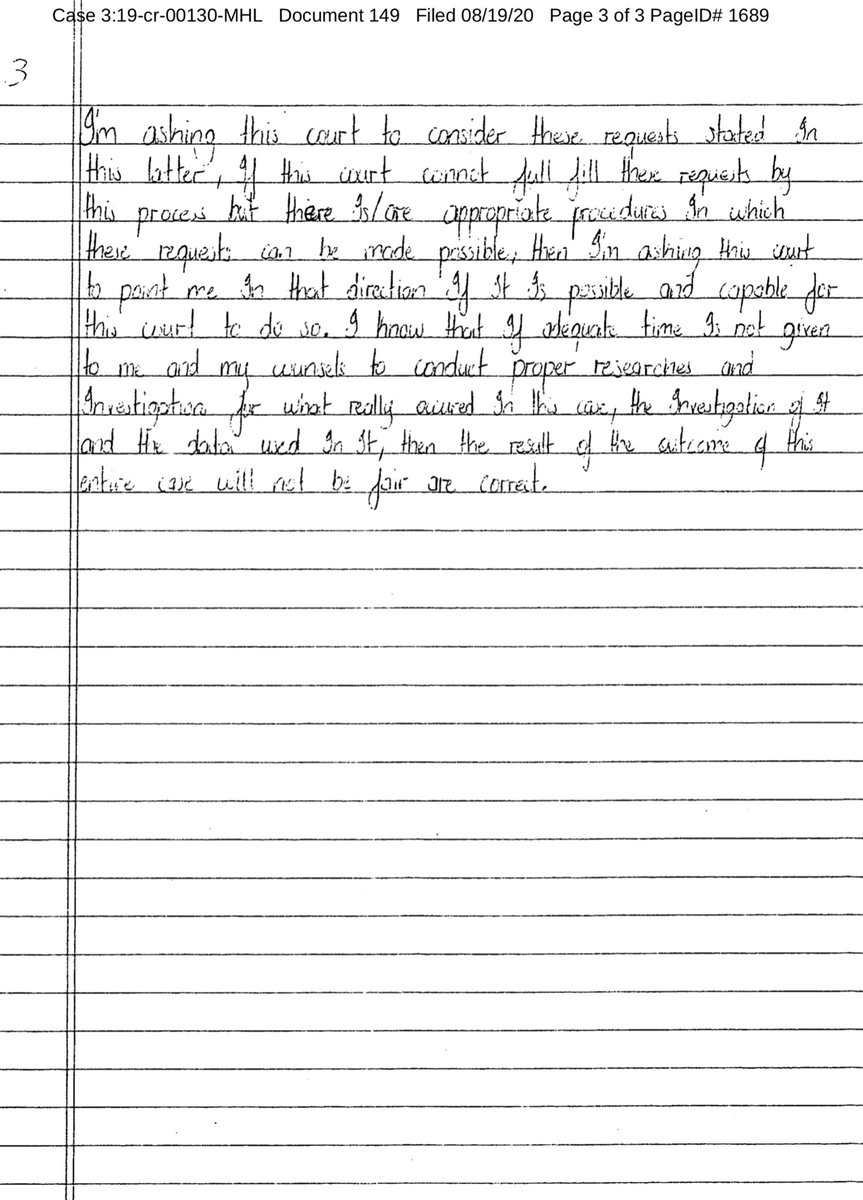 Case 3:19-cr-00130-MHL Document 149 Filed 08/19/20 Page 3 of 3 PageID# 1689
3
I'm asking this court to consider these requests stated In
this latter, If this court cannot full fill these requests by
this process but there Is/are appropriate procedures In which
these requests can be made possible, then I'm asking this court
to point me In that direction If It Is possible and capable for
this court to do so. I know that If adequate time Is not given
to me and my counsels to conduct proper researches and
Investigation for what really occured In this case, the Investigation of It
and the data used In It, then the result of the outcome of this
entire case will not be fair are correct.